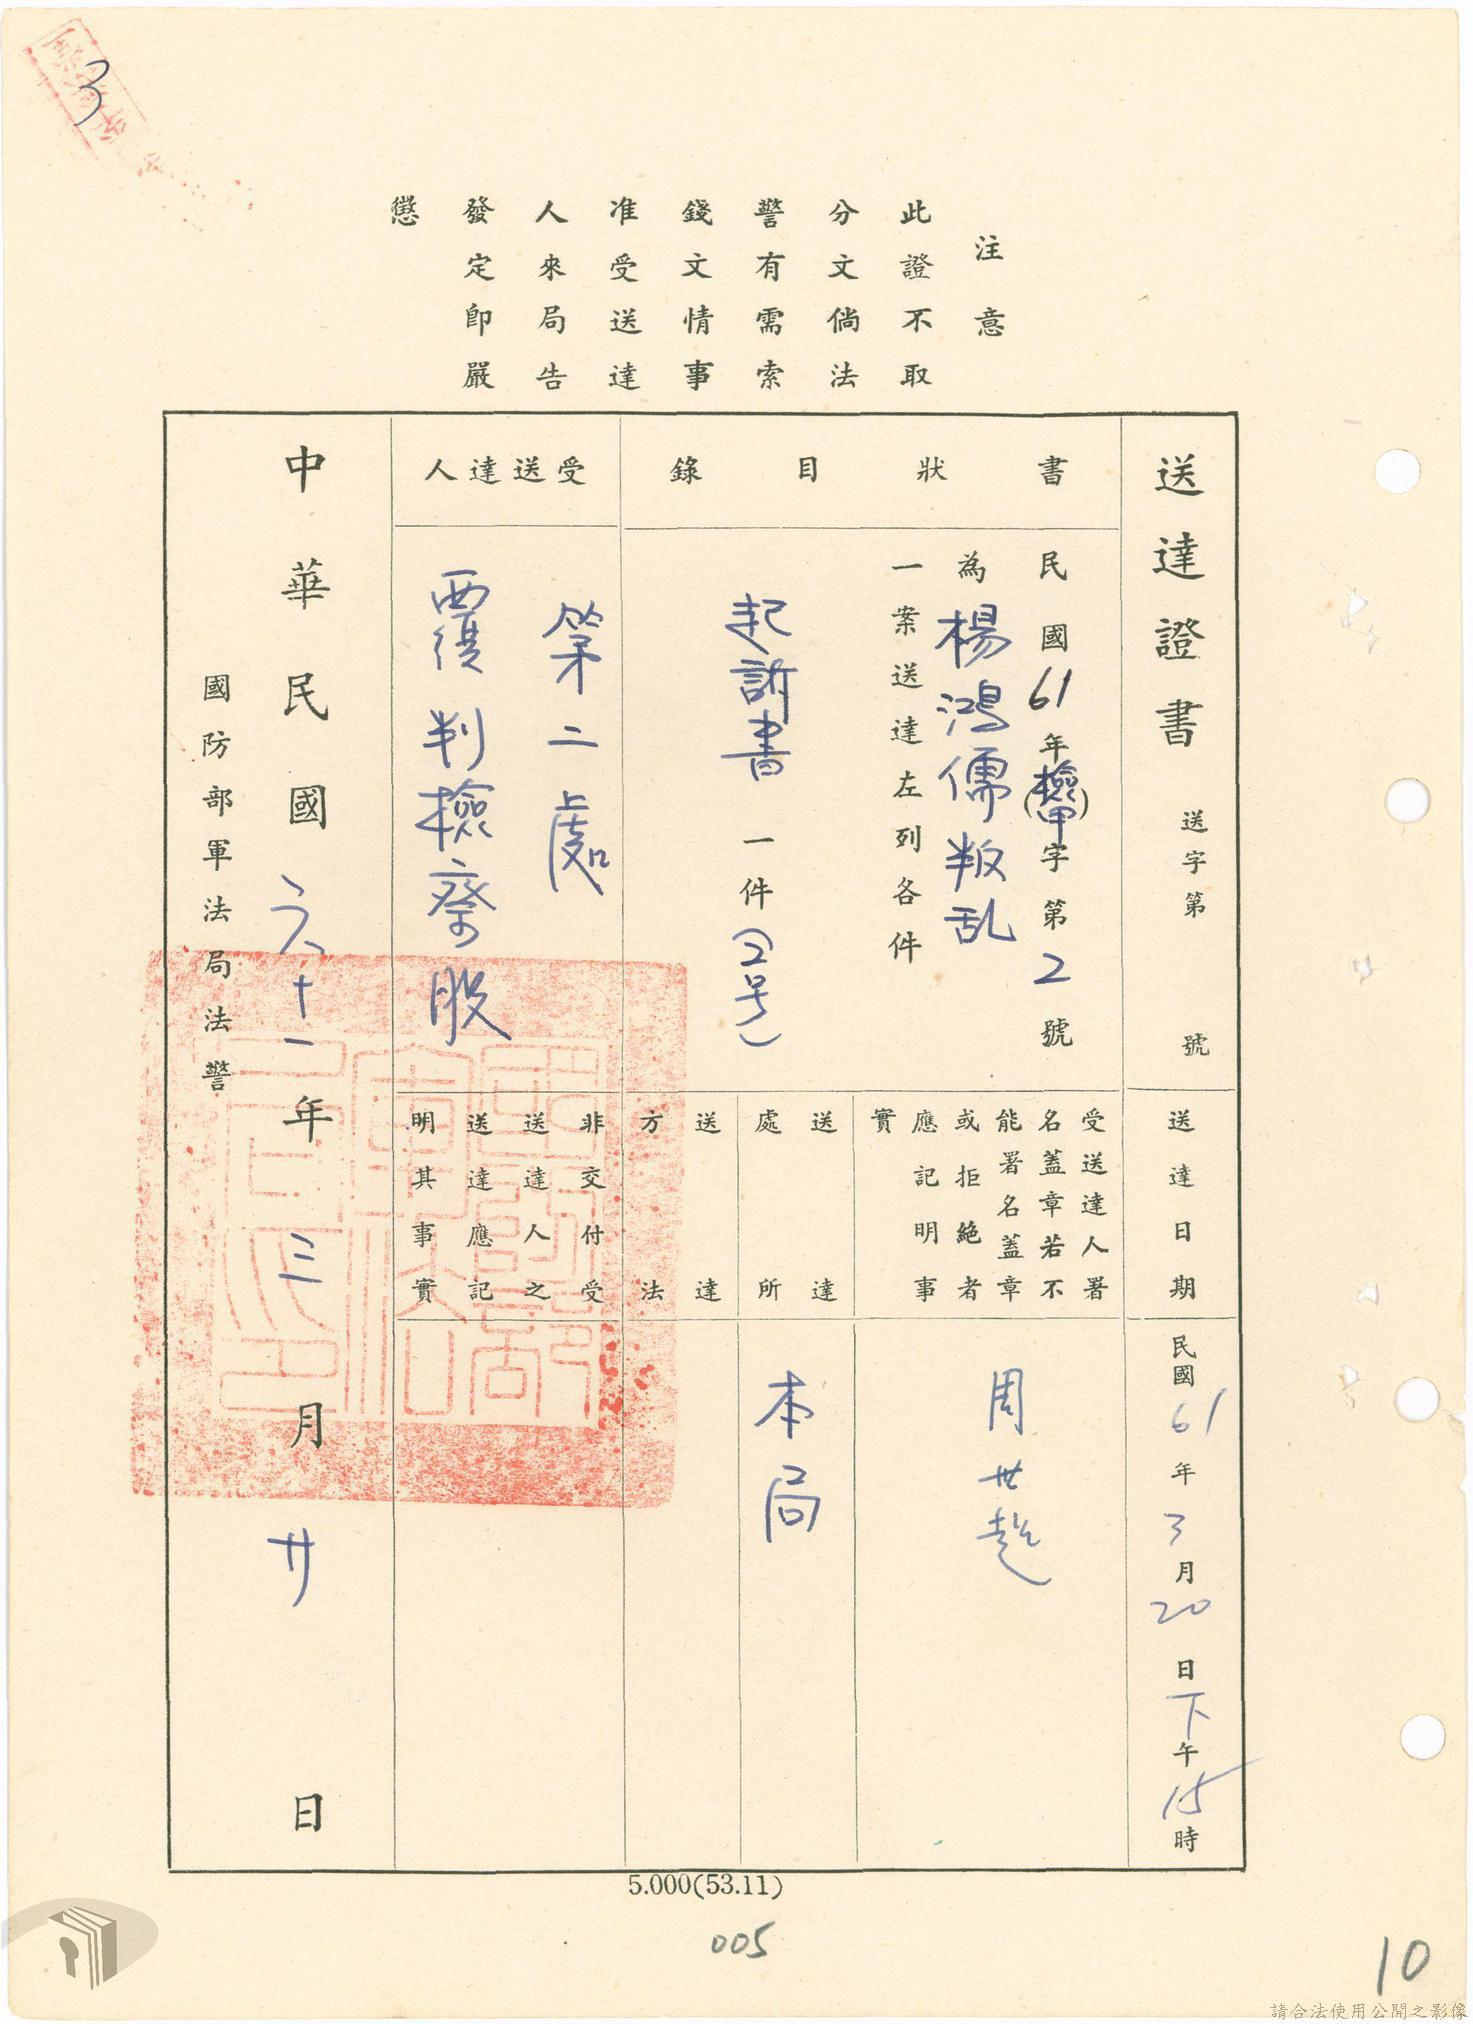 3
注意
此證不取
分文倘法
警有需索
錢文情事
准受送達
人來局告
發定即嚴
懲
送達證書
送字第 號
書狀目錄
民國61年(檢甲)字第2號
為楊鴻儒叛乱
一案送達左列各件
起訴書一件(2号)
受送達人
第二處
覆判檢察股
送達日期
民國61年3月20日下午15時
受送達人署
名蓋章若不
能署名蓋章
或拒絕者
應記明事
實
周世超
送達
處所
本局
送達
方法
非交付受
送達人之
送達應記
明其事實
中華民國六十一年三月廿日
國防部軍法局法警
5.000(53.11)
005
10
請合法使用公開之影像